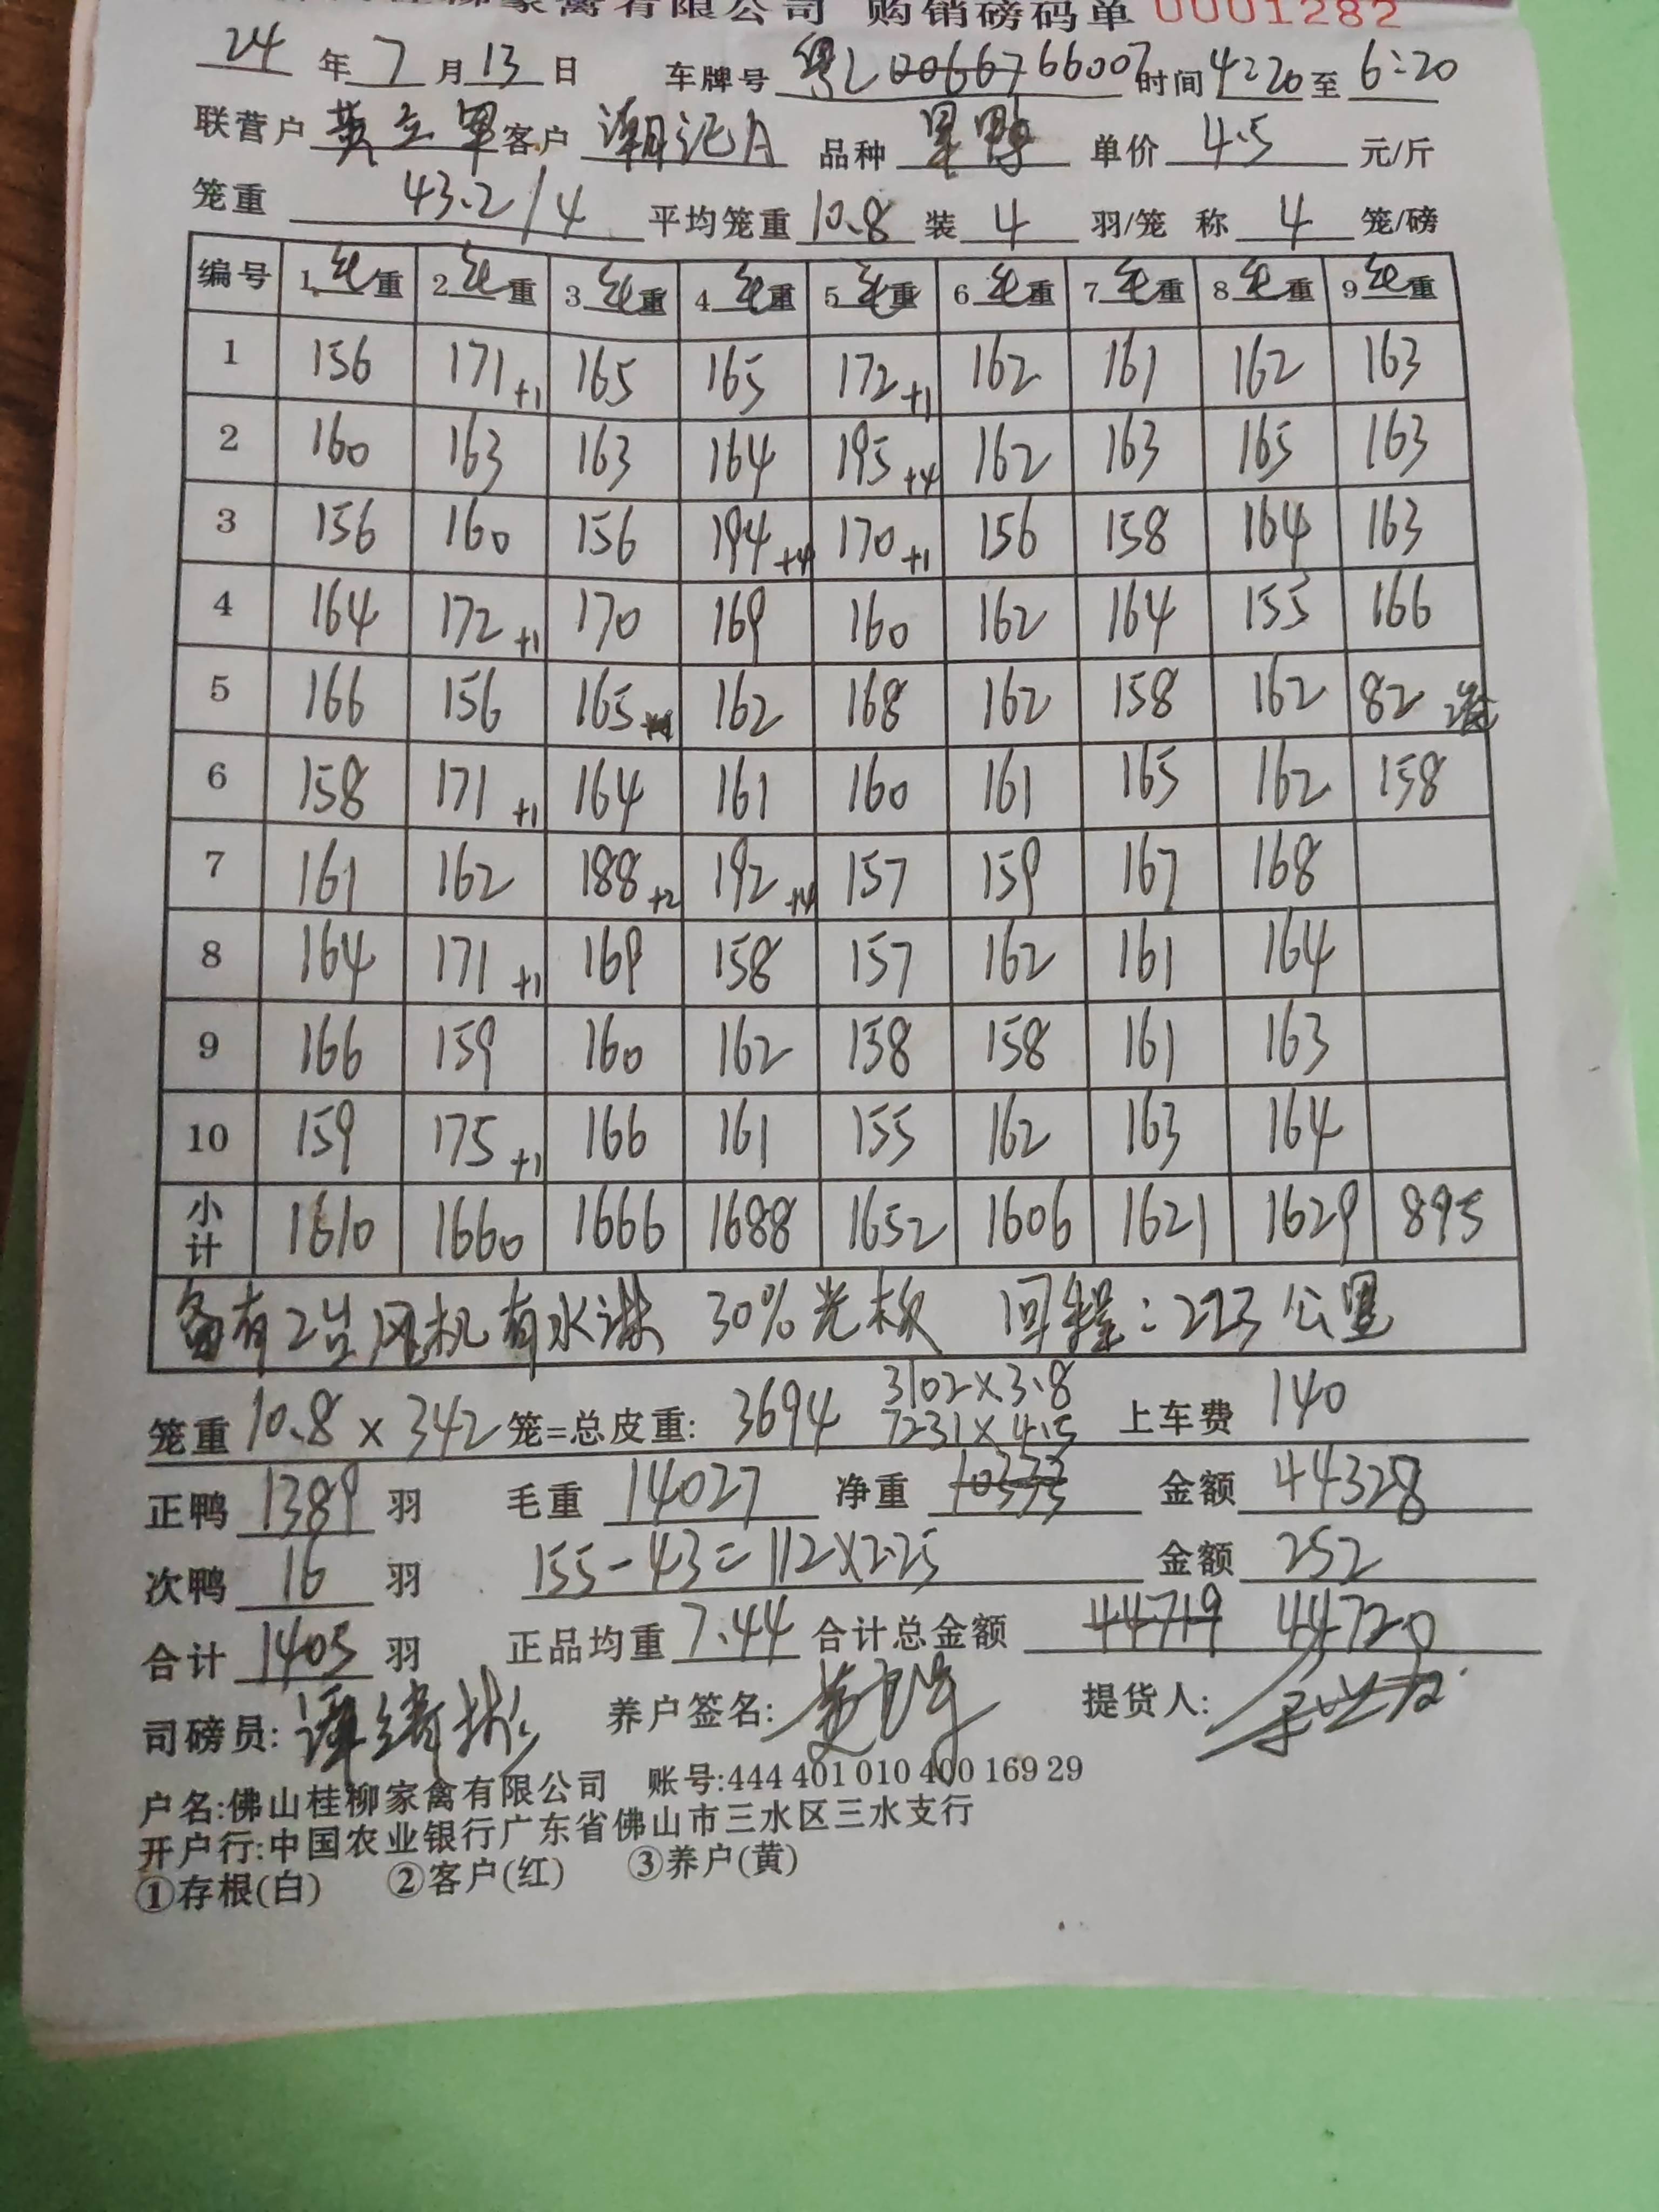 家禽有限公司 购销磅码单 0001282
24 年 7 月 13 日 车牌号 粤L 66007 时间 4:20 至 6:20
联营户 黄立军 客户 潮记A 品种 单价 4.5 元/斤
笼重 43.2/4 平均笼重 10.8 装 4 羽/笼 称 4 笼/磅
编号 1 毛重 2 毛重 3 毛重 4 毛重 5 毛重 6 毛重 7 毛重 8 毛重 9 毛重
1 156 171+1 165 165 172+1 162 161 162 163
2 160 163 163 164 195+4 162 163 165 163
3 156 160 156 194+4 170+1 156 158 164 163
4 164 172+1 170 169 160 162 164 155 166
5 166 156 165 162 168 162 158 162 82 2笼
6 158 171+1 164 161 160 161 165 162 158
7 161 162 188+2 192+4 157 159 167 168
8 164 171+1 169 158 157 162 161 164
9 166 159 160 162 158 158 161 163
10 159 175+1 166 161 155 162 163 164
小计 1610 1660 1666 1688 1652 1606 1621 1629 895
备有2台风机有水淋 30%光板 回程:223公里
3102×3.8
笼重 10.8 × 342 笼=总皮重: 3694 7231×4.5 上车费 140
正鸭 1389 羽 毛重 14027 净重 10333 金额 44328
次鸭 16 羽 155-43=112×2.25 金额 252
合计 1405 羽 正品均重 7.44 合计总金额 44719 44720
司磅员: 养户签名: 提货人:
户名:佛山桂柳家禽有限公司 账号:444 401 010 400 169 29
开户行:中国农业银行广东省佛山市三水区三水支行
①存根(白) ②客户(红) ③养户(黄)